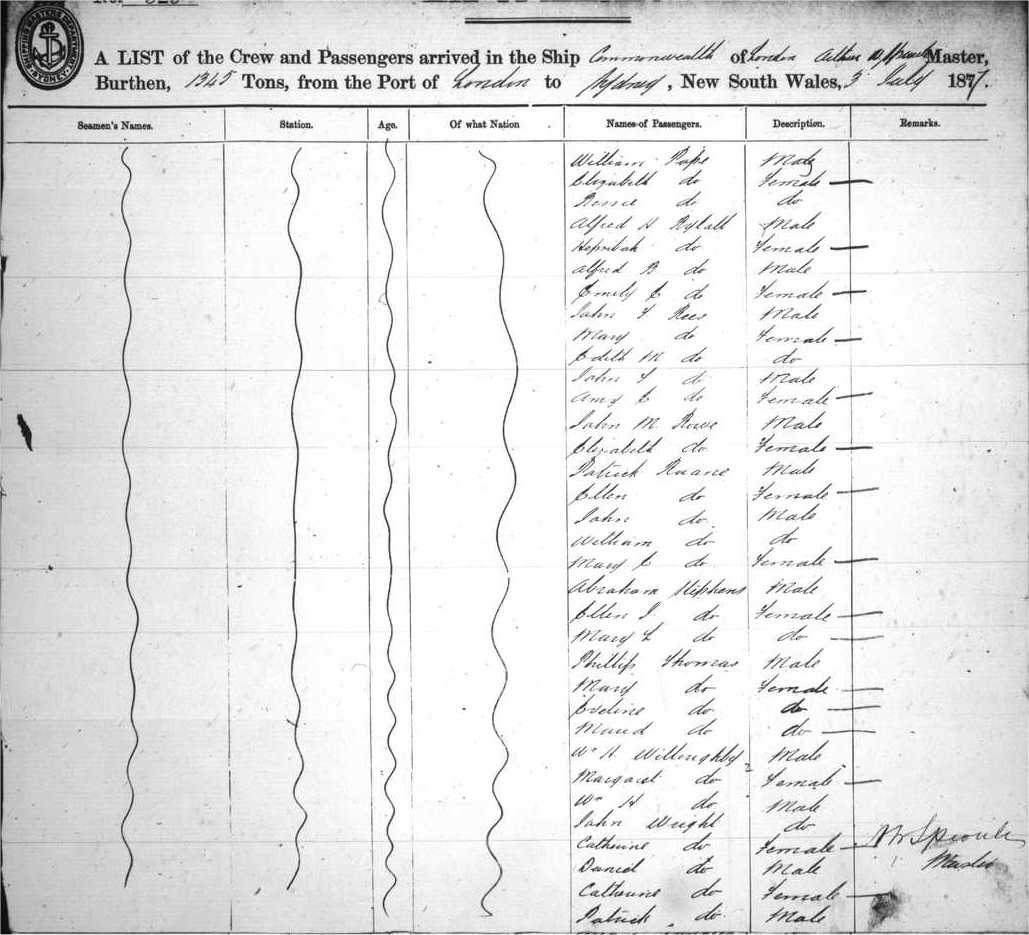 A LIST of the Crew and Passengers arrived in the Ship Commonwealth of London Arthur Master,
Burthen, 1345 Tons, from the Port of London to Sydney, New South Wales, 3 July 1877.
Seamen's Names. Station. Age. Of what Nation Names of Passengers. Description. Remarks.
William Pope Male
Elizabeth do Female —
do do
Alfred H Rylatt Male
do Female —
Alfred B do Male
Emily E do Female —
John T Rees Male
Mary do Female —
Edith M do do
John T do Male
Amy E do Female —
John M Rowe Male
Elizabeth do Female —
Patrick Ruane Male
Ellen do Female —
John do Male
William do do
Mary E do Female —
Abraham Stephens Male
Ellen J do Female —
Mary L do do —
Phillip Thomas Male
Mary do Female —
Eveline do do —
Maud do do —
Wm H Willoughby Male
Margaret do Female —
Wm H do Male
John Wright do
Catherine do Female —
Daniel do Male
Catherine do Female —
Patrick do Male
Master